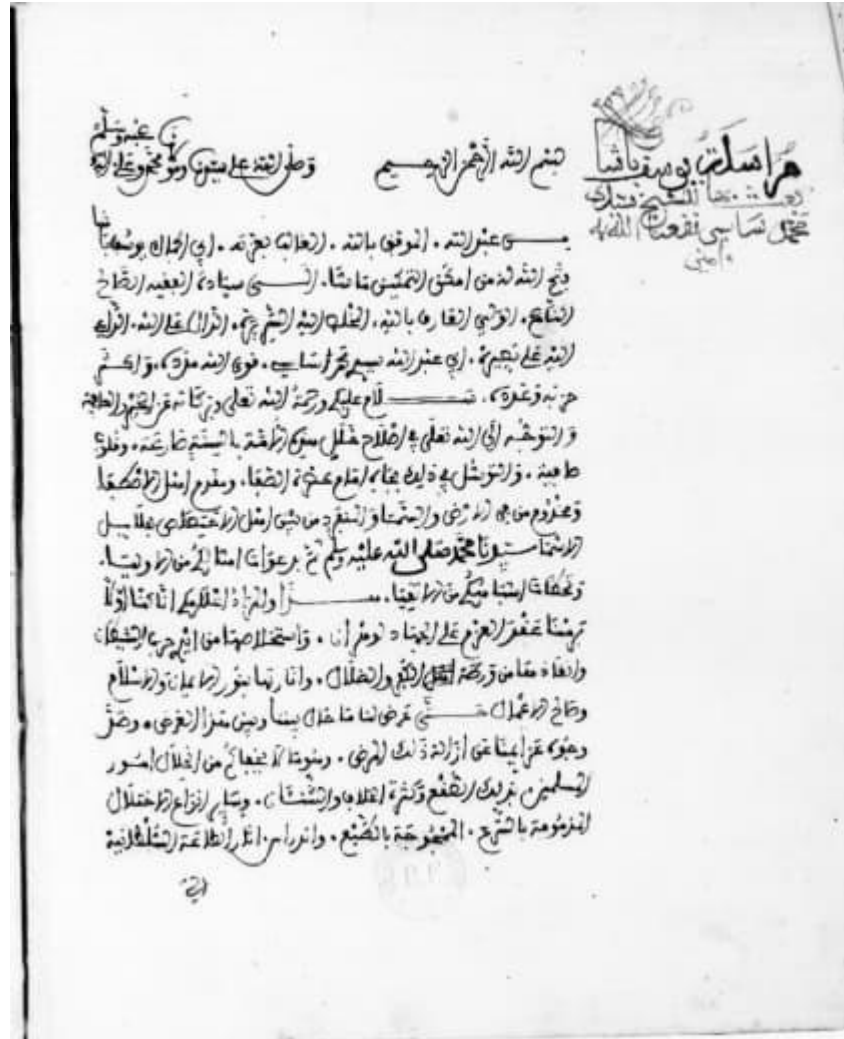 مراسلة يوسف باشا
بعث بها للشيخ سيدي
محمد ساسي نفعنا الله به
ءامين
بسم الله الرحمن الرحيم وصلى الله على سيدنا ومولانا محمد وعلى ءاله
وصحبه وسلم
من عبد الله . الموفق بالله . الغالب بعزته . ابي الجمال يوسف باشا
فتح الله له من التمكين ما شا. الى سيادة الفقيه الصالح
الناجح . الولي العارف بالله . الدال على الله . الداعي
الى الله على بصيرة . ابي عبد الله سيدي محمد ساسي . قوى الله مدده .
حزبه وعدده . سلام عليكم ورحمة الله تعلى وبركاته
والتوجه الى الله تعلى في اصلاح خلل هذه بالسنة ضارعة . وقلوب
والتوسل في ذلك بجاه امام حضرة الصفا . ومقدم اهل الاصطفا
ومخدوم من في الارض والسما والمنفرد من بين اهل الاختصاص بجلايل
الاسما سيدنا محمد صلى الله عليه وسلم ثم بدعوات امثالكم من الاوليا .
من الاتقيا . هذا والمراد اعلامكم اننا كنا اولا
عقد العزم على الجهاد لوهران . واستخلاصها من ايدي حزب الشيطان
وانقاذها من ورطة اهل الكفر والضلال . وانارتها بنور الايمان والاسلام
وصالح الاعمال حتى عرض لنا ما حال بيننا وبين هذا الغرض . وصد
وجوه عزايمنا عن ازالة ذلك المرض . وهو ما لا يخفاكم من انحلال امور
المسلمين . وكثرة الخلاف والشتات . وساير انواع الاختلال
المذمومة بالشرع . الممجوجة بالطبع . واندراس اثار الطاعة السلطانية